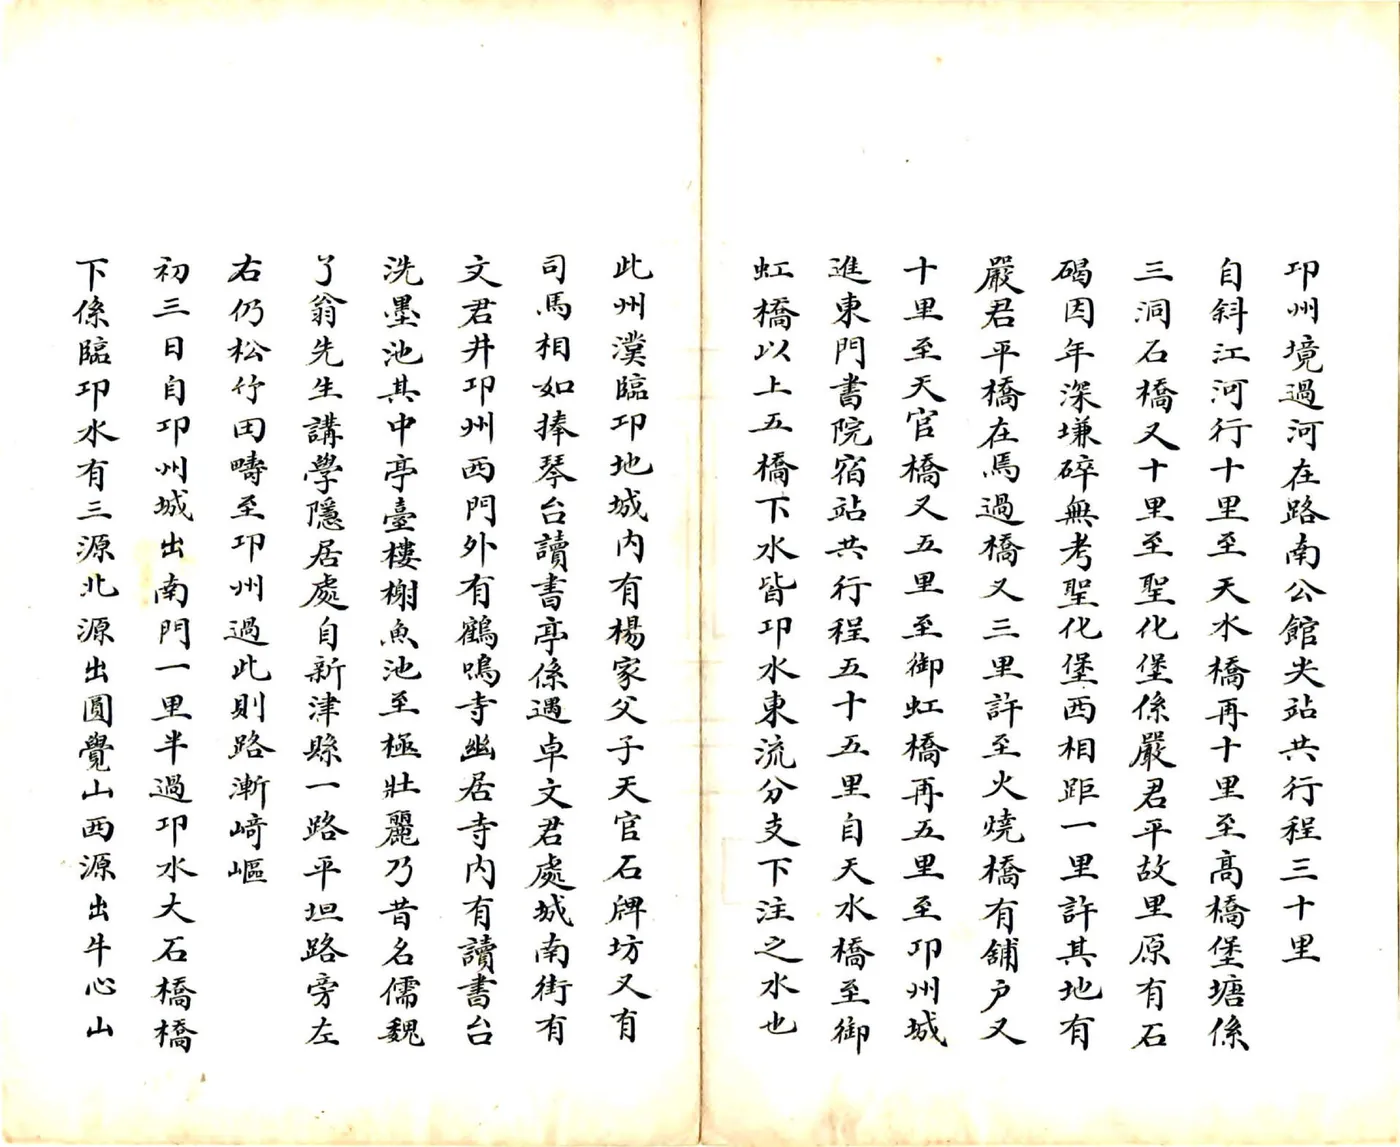 邛州境過河在路南公館尖站共行程三十里
自斜江河行十里至天水橋再十里至高橋堡塘係
三洞石橋又十里至聖化堡係嚴君平故里原有石
碣因年深壎碎無考聖化堡西相距一里許其地有
嚴君平橋在焉過橋又三里許至火燒橋有舖户又
十里至天官橋又五里至御虹橋再五里至邛州城
進東門書院宿站共行程五十五里自天水橋至御
虹橋以上五橋下水皆邛水東流分支下注之水也
此州漢臨邛地城内有楊家父子天官石牌坊又有
司馬相如捧琴台讀書亭係遇卓文君處城南街有
文君井邛州西門外有鶴鳴寺幽居寺内有讀書台
洗墨池其中亭臺樓榭魚池至極壯麗乃昔名儒魏
了翁先生講學隱居處自新津縣一路平坦路旁左
右仍松竹田疇至邛州過此則路漸崎嶇
初三日自邛州城出南門一里半過邛水大石橋橋
下係臨邛水有三源北源出圓覺山西源出牛心山